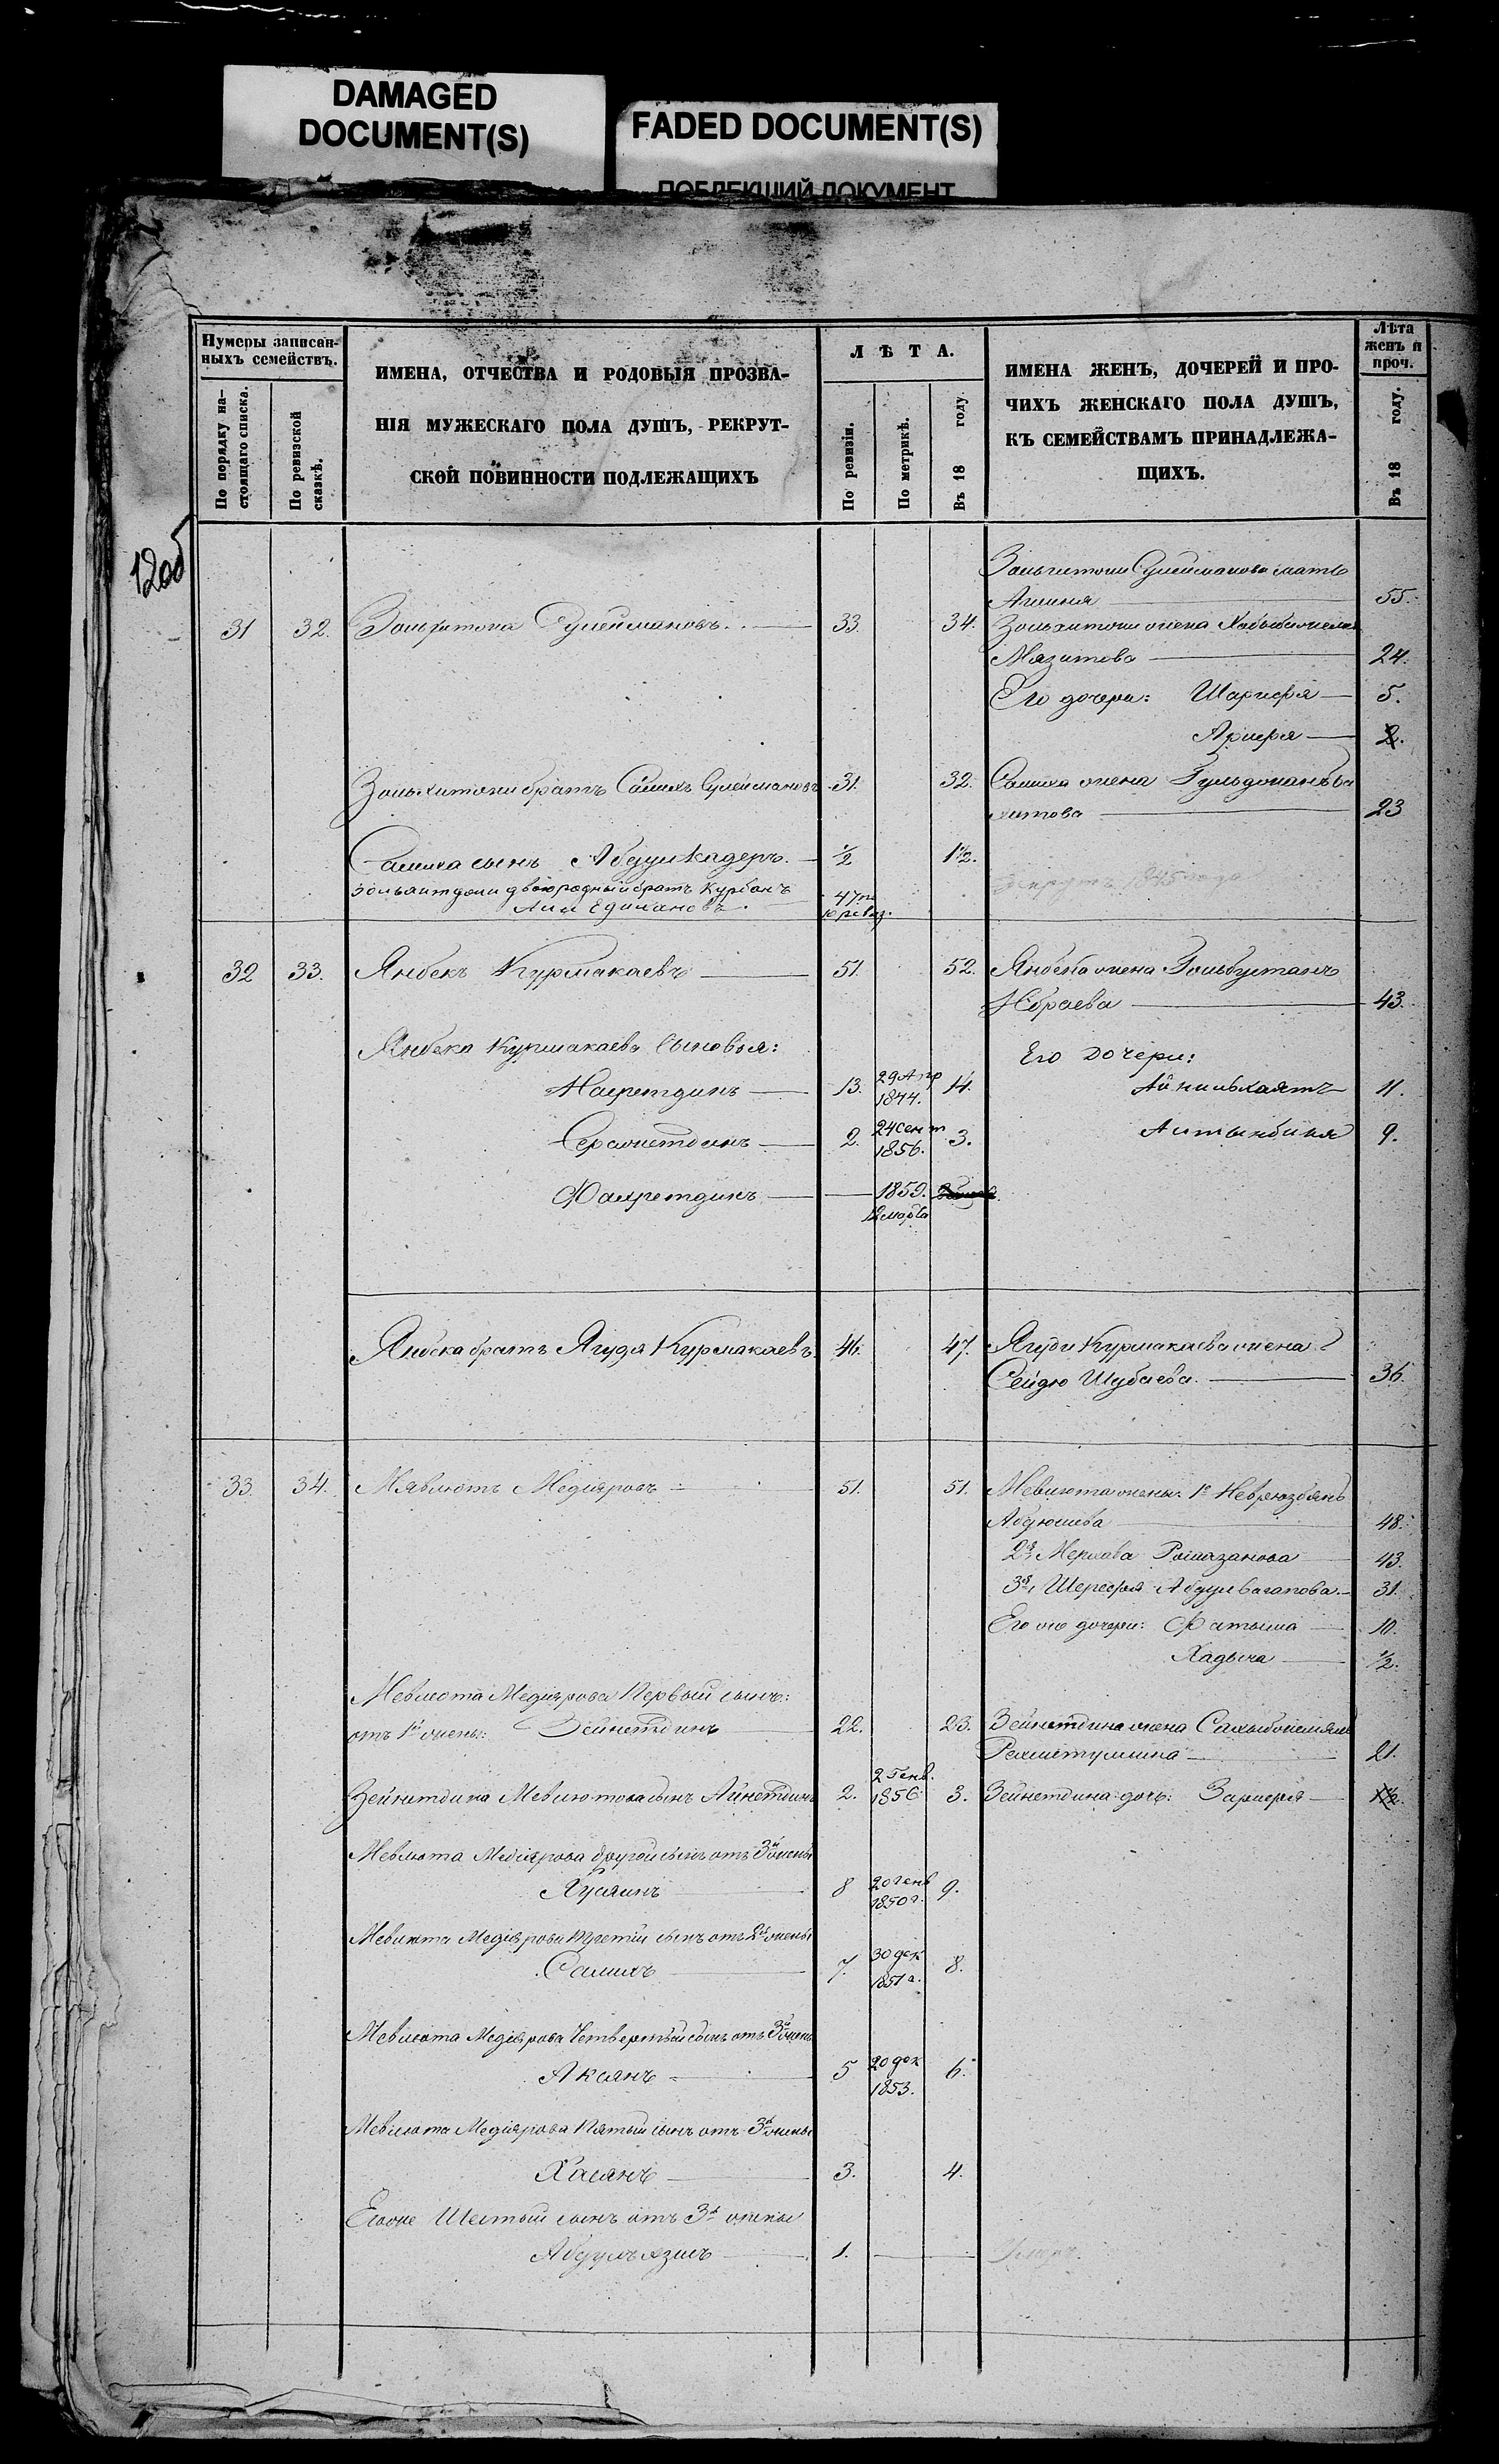 DAMAGED
DOCUMENT(S)
FADED DOCUMENT(S)
ПОБЛЕКШИЙ ДОКУМЕНТ
Нумеры записан-
ныхъ семействъ.
По порядку на-
стоящаго списка.
По ревизской
сказкѣ.
ИМЕНА, ОТЧЕСТВА И РОДОВЫЯ ПРОЗВА-
НІЯ МУЖЕСКАГО ПОЛА ДУШЪ, РЕКРУТ-
СКОЙ ПОВИННОСТИ ПОДЛЕЖАЩИХЪ
ЛѢТА.
По ревизіи.
По метрикѣ.
Въ 18 году
ИМЕНА ЖЕНЪ, ДОЧЕРЕЙ И ПРО-
ЧИХЪ ЖЕНСКАГО ПОЛА ДУШЪ,
КЪ СЕМЕЙСТВАМЪ ПРИНАДЛЕЖА-
ЩИХЪ.
Лѣта
женъ и
проч.
Въ 18 году.
120об
Сулейманова мать
55.
31 32. Сулеймановъ. 33. 34. жена
Мязитова 24.
Его дочери: Шарифя 5.
Арифя 2.
братъ Салихъ Сулеймановъ 31. 32. Салиха жена
хитова 23
Салиха сынъ Абдулкадеръ. 1/2 1 1/2.
двоюродный братъ Курбанъ 47 по
10 ревиз.
1845 года
32 33. Янбекъ Курмакаевъ 51. 52. Янбека жена Гольбустанъ
Ибраева 43.
Янбека Курмакаева сыновья:
Его дочери:
13. 29 Апр 1844. 14. 11.
2. 24 сент 1856. 3. Алтынбикя 9.
Фахретдинъ 1859. 12 марта
Янбека братъ Ягудя Курмакаевъ 46. 47. Ягуди Курмакаева жена
Сейдю Шубаева. 36.
33. 34. Мявлютъ Медіяровъ 51. 51. Мевлюта жены: 1я
Абдюшева 48.
2я Рамазанова 43.
3я, Шерефя Абдулвагапова. 31.
Его же дочери: Фатыма 10.
Хадыча 1/2.
Мевлюта Медіярова Первый сынъ:
отъ 1й жены: Зейнетдинъ 22. 23. Зейнетдина жена
21.
Зейнетдина Мевлютова сынъ Айнетдинъ 2. 2 Генв. 1856. 3. Зейнетдина дочь: Зарифя 1 1/2.
Мевлюта Медіярова другой сынъ отъ 3й жены
8 20 Генв 1850 г. 9.
Мевлюта Медіярова третій сынъ отъ 2й жены
Салихъ 7. 30 дек 1851 г. 8.
Мевлюта Медіярова Четвертый сынъ отъ 3й жены
5 20 дек 1853. 6.
Мевлюта Медіярова Пятый сынъ отъ 3й жены
Хасянъ 3. 4.
Его же Шестый сынъ отъ 3й жены
1. Умеръ.